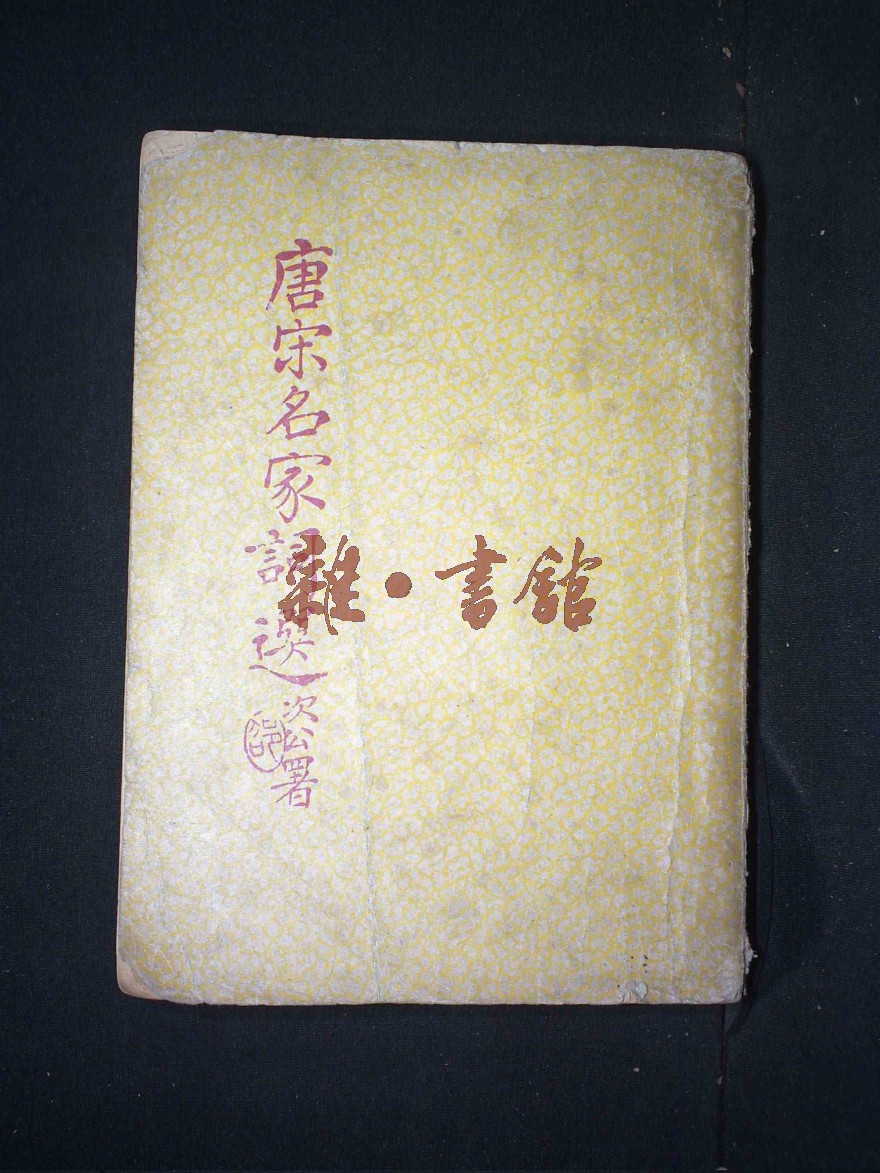 唐宋名家詞選
次公署
雜·書館